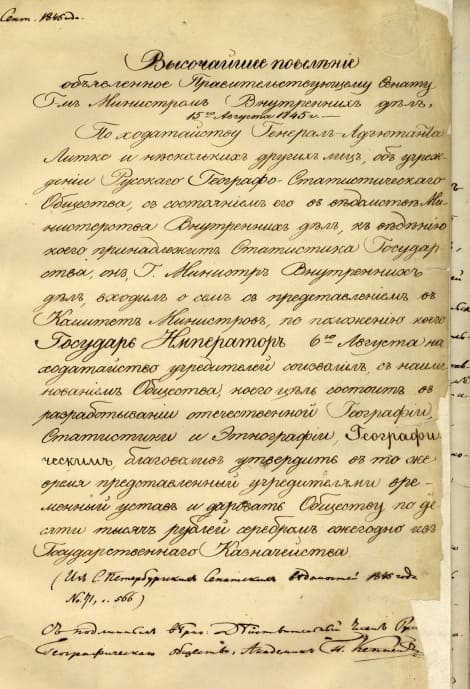 Сент. 1845 года.
Высочайшее повелѣніе
объявленное Правительствующему Сенату
Г-мъ Министромъ Внутреннихъ дѣлъ,
15го Августа 1845 г.—
По ходатайству Генералъ-Адъютанта
Литке и нѣсколькихъ другихъ лицъ, объ учреж-
деніи Русскаго Географо-Статистическаго
Общества, съ состояніемъ его въ вѣдомствѣ Ми-
нистерства Внутреннихъ дѣлъ, къ вѣдѣнію
коего принадлежитъ Статистика Государ-
ства, онъ, Г. Министръ Внутреннихъ
дѣлъ, входилъ о семъ съ представленіемъ въ
Комитетъ Министровъ, по положенію коего
Государь Императоръ 6го Августа на
ходатайство учредителей соизволилъ, съ наиме-
нованіемъ Общества, коего цѣль состоитъ въ
разработываніи отечественной Географіи,
Статистики и Этнографіи, Географи-
ческимъ, благоволивъ утвердить въ то же
время представленный учредителями вре-
менный уставъ и даровать Обществу по де-
сяти тысячъ рублей серебромъ ежегодно изъ
Государственнаго Казначейства.
(Изъ С. Петербургскихъ Сенатскихъ вѣдомостей 1845 года
№ 71, с. 566)
Съ подлиннымъ вѣрно: Дѣйствительный Членъ Рус.
Географическаго общества, Академикъ П. Кеппенъ